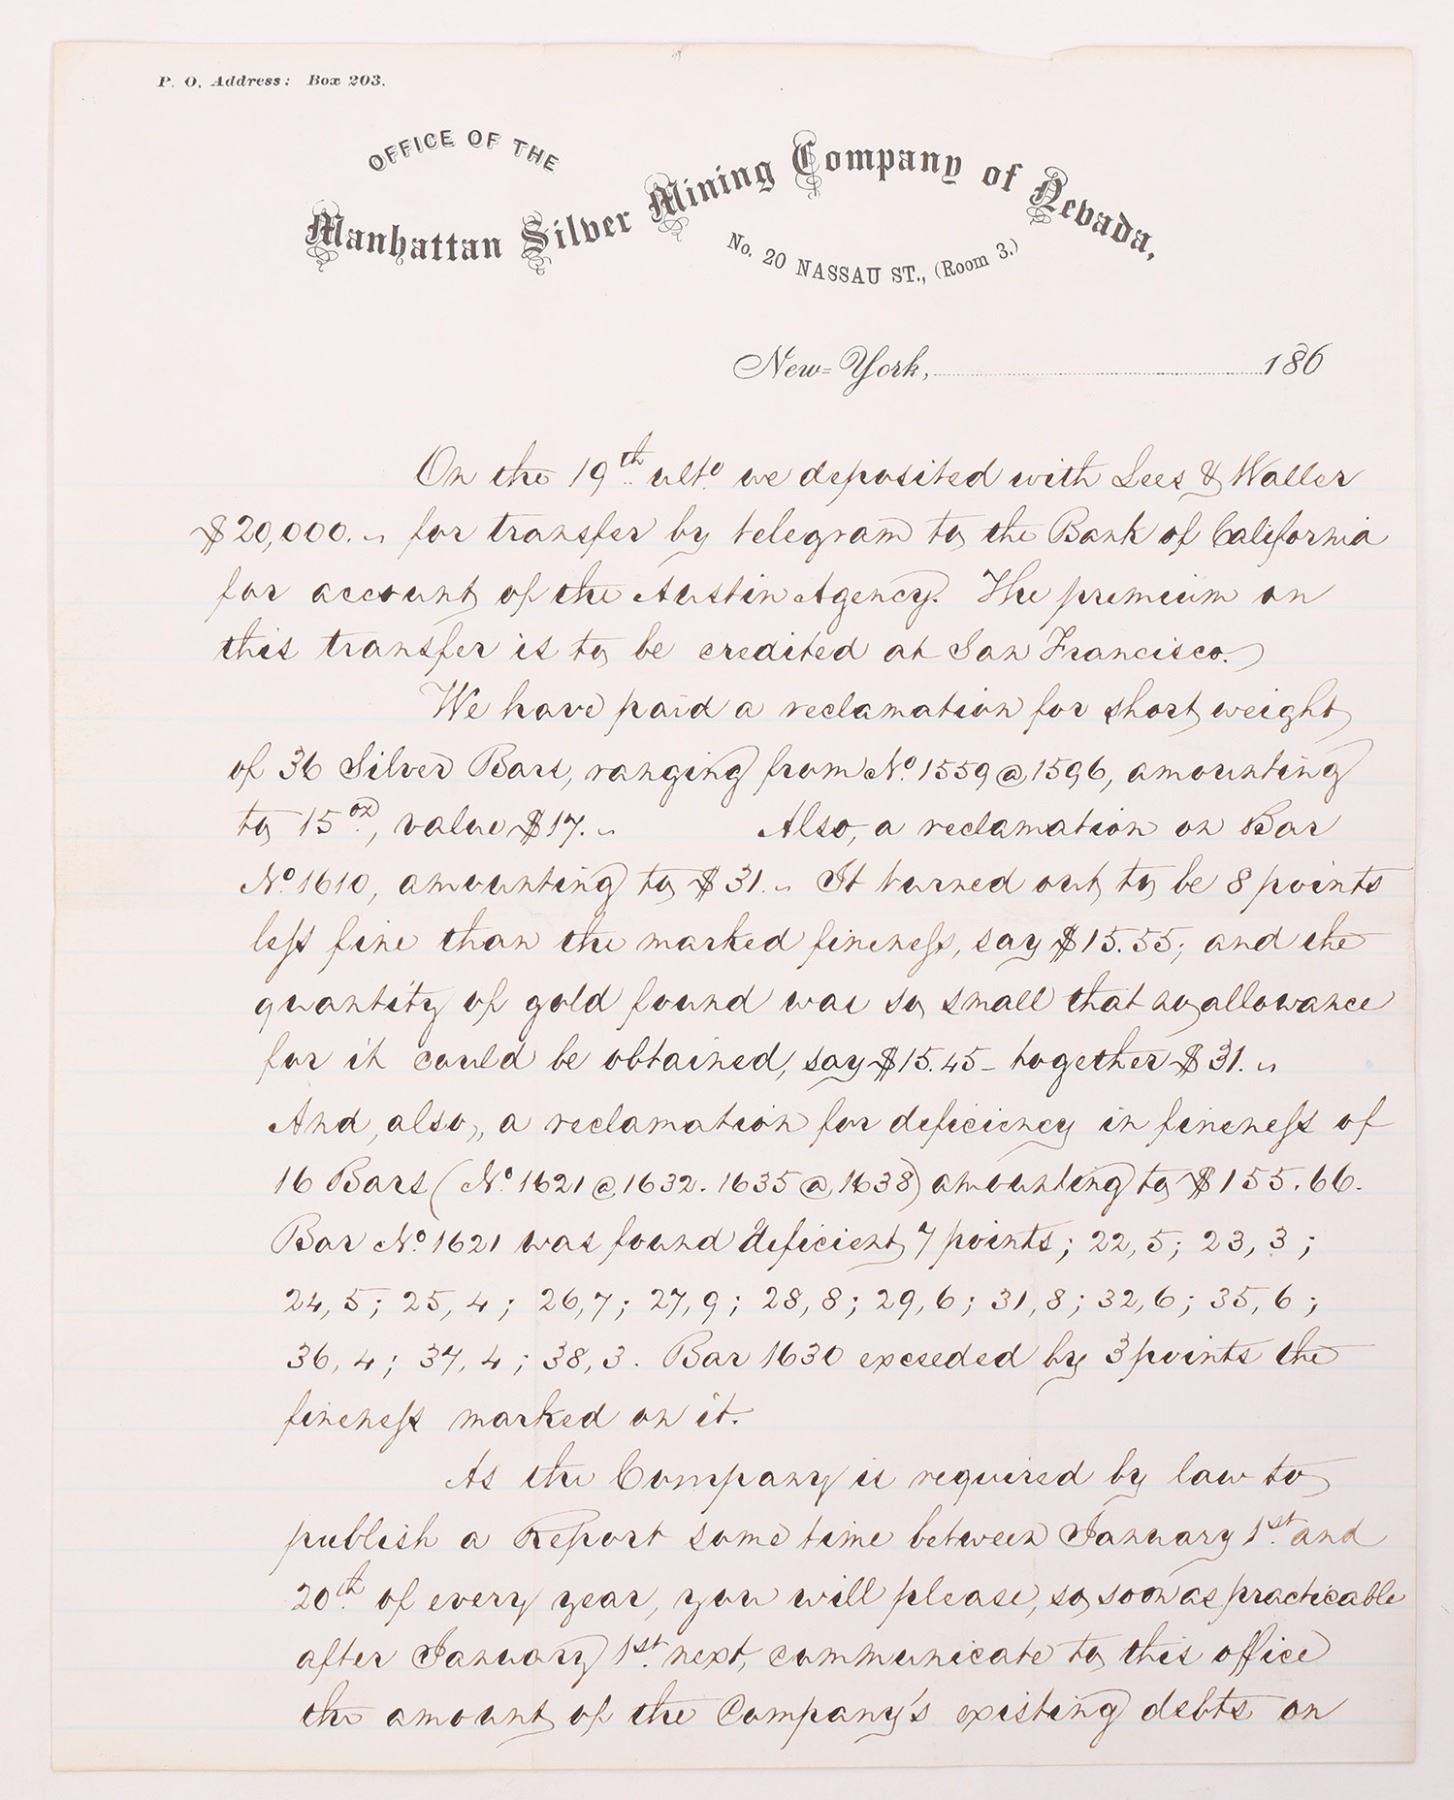 P. O. Address: Box 203.
OFFICE OF THE
Manhattan Silver Mining Company of Nevada,
No. 20 NASSAU ST., (Room 3.)
New-York, 186
On the 19th ulto. we deposited with Lees & Waller
$20,000.„ for transfer by telegram to the Bank of California
for account of the Austin Agency. The premium on
this transfer is to be credited at San Francisco.
We have paid a reclamation for short weight
of 36 Silver Bars, ranging from No. 1559 @ 1596, amounting
to 15 oz, value $17.„ Also, a reclamation on Bar
No. 1610, amounting to $31.„ It turned out to be 8 points
less fine than the marked fineness, say $15.55; and the
quantity of gold found was so small that no allowance
for it could be obtained, say $15.45 - together $31.„
And, also, a reclamation for deficiency in fineness of
16 Bars (No. 1621 @ 1632. 1635 @ 1638) amounting to $155.66.
Bar No. 1621 was found deficient 7 points; 22, 5; 23, 3;
24, 5; 25, 4; 26, 7; 27, 9; 28, 8; 29, 6; 31, 8; 32, 6; 35, 6;
36, 4; 37, 4; 38, 3. Bar 1630 exceeded by 3 points the
fineness marked on it.
As the Company is required by law to
publish a Report some time between January 1st and
20th of every year, you will please, so soon as practicable
after January 1st next, communicate to this office
the amount of the Company's existing debts on